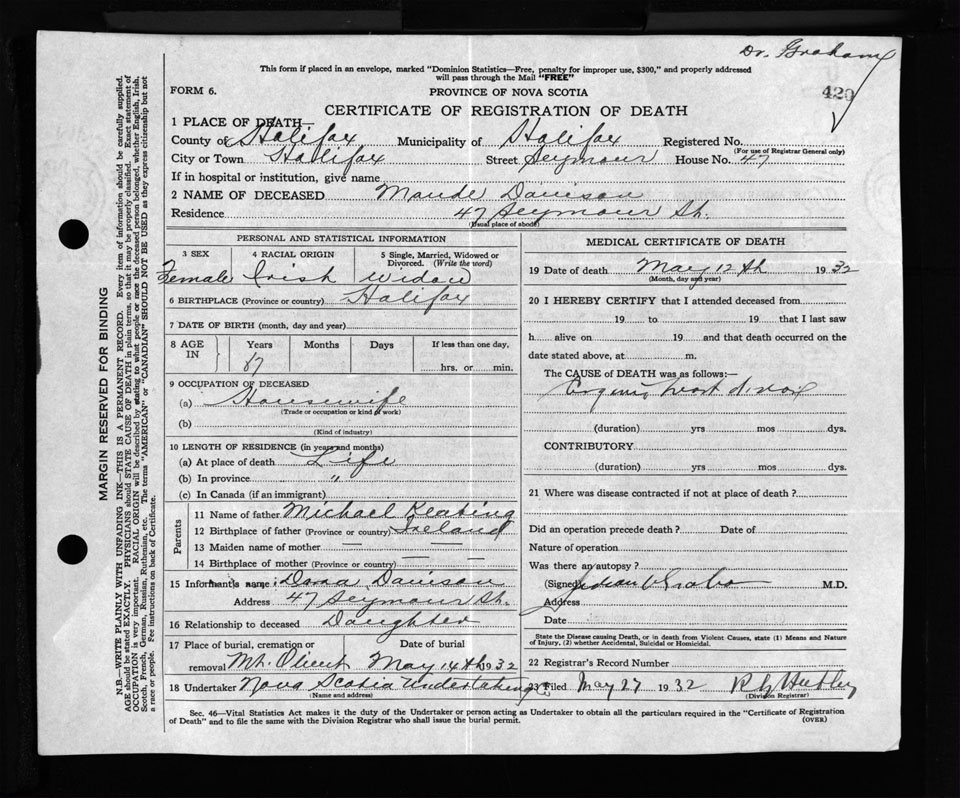 Dr. Graham
This form if placed in an envelope, marked "Dominion Statistics—Free, penalty for improper use, $300," and properly addressed
will pass through the Mail "FREE"
FORM 6.
PROVINCE OF NOVA SCOTIA
420
CERTIFICATE OF REGISTRATION OF DEATH
1 PLACE OF DEATH—
County of Halifax Municipality of Halifax Registered No.
(For use of Registrar General only)
City or Town Halifax Street Seymour House No. 47
If in hospital or institution, give name
2 NAME OF DECEASED Maude Davison
Residence 47 Seymour St.
(Usual place of abode)
PERSONAL AND STATISTICAL INFORMATION
3 SEX 4 RACIAL ORIGIN 5 Single, Married, Widowed or
Divorced. (Write the word)
Female Irish Widow
6 BIRTHPLACE (Province or country) Halifax
7 DATE OF BIRTH (month, day and year)
8 AGE IN Years Months Days If less than one day,
hrs. or min.
9 OCCUPATION OF DECEASED
(a) Housewife
(Trade or occupation or kind of work)
(b)
(Kind of industry)
10 LENGTH OF RESIDENCE (in years and months)
(a) At place of death Life
(b) In province "
(c) In Canada (if an immigrant)
Parents
11 Name of father Michael Keating
12 Birthplace of father (Province or country) Ireland
13 Maiden name of mother —
14 Birthplace of mother (Province or country) — —
15 Informant's name: Dora Davison
Address 47 Seymour St.
16 Relationship to deceased Daughter
17 Place of burial, cremation or Date of burial
removal Mt. Olivet May 14th 1932
18 Undertaker Nova Scotia Undertaking
(Name and address)
MEDICAL CERTIFICATE OF DEATH
19 Date of death May 12th 1932
(Month, day and year)
20 I HEREBY CERTIFY that I attended deceased from
19 to 19 that I last saw
h alive on 19 and that death occurred on the
date stated above, at m.
The CAUSE of DEATH was as follows:—
(duration) yrs mos dys.
CONTRIBUTORY
(duration) yrs mos dys.
21 Where was disease contracted if not at place of death?
Did an operation precede death? Date of
Nature of operation
Was there an autopsy?
(Signed) M.D.
Address
Date
State the Disease causing Death, or in death from Violent Causes, state (1) Means and Nature
of Injury, (2) whether Accidental, Suicidal or Homicidal.
22 Registrar's Record Number
23 Filed May 27 1932
(Division Registrar)
Sec. 46—Vital Statistics Act makes it the duty of the Undertaker or person acting as Undertaker to obtain all the particulars required in the "Certificate of Registration
of Death" and to file the same with the Division Registrar who shall issue the burial permit.
(OVER)
MARGIN RESERVED FOR BINDING
N.B.—WRITE PLAINLY WITH UNFADING INK—THIS IS A PERMANENT RECORD. Every item of information should be carefully supplied.
AGE should be stated EXACTLY. PHYSICIANS should STATE CAUSE OF DEATH in plain terms, so that it may be properly classified. Exact statement of
OCCUPATION is very important. RACIAL ORIGIN will be described by stating to what people or race the deceased person belonged, whether English, Irish,
Scotch, French, German, Russian, Ruthenian, etc. The terms "AMERICAN" or "CANADIAN" SHOULD NOT BE USED as they express citizenship but not
a race or people. See instructions on back of Certificate.